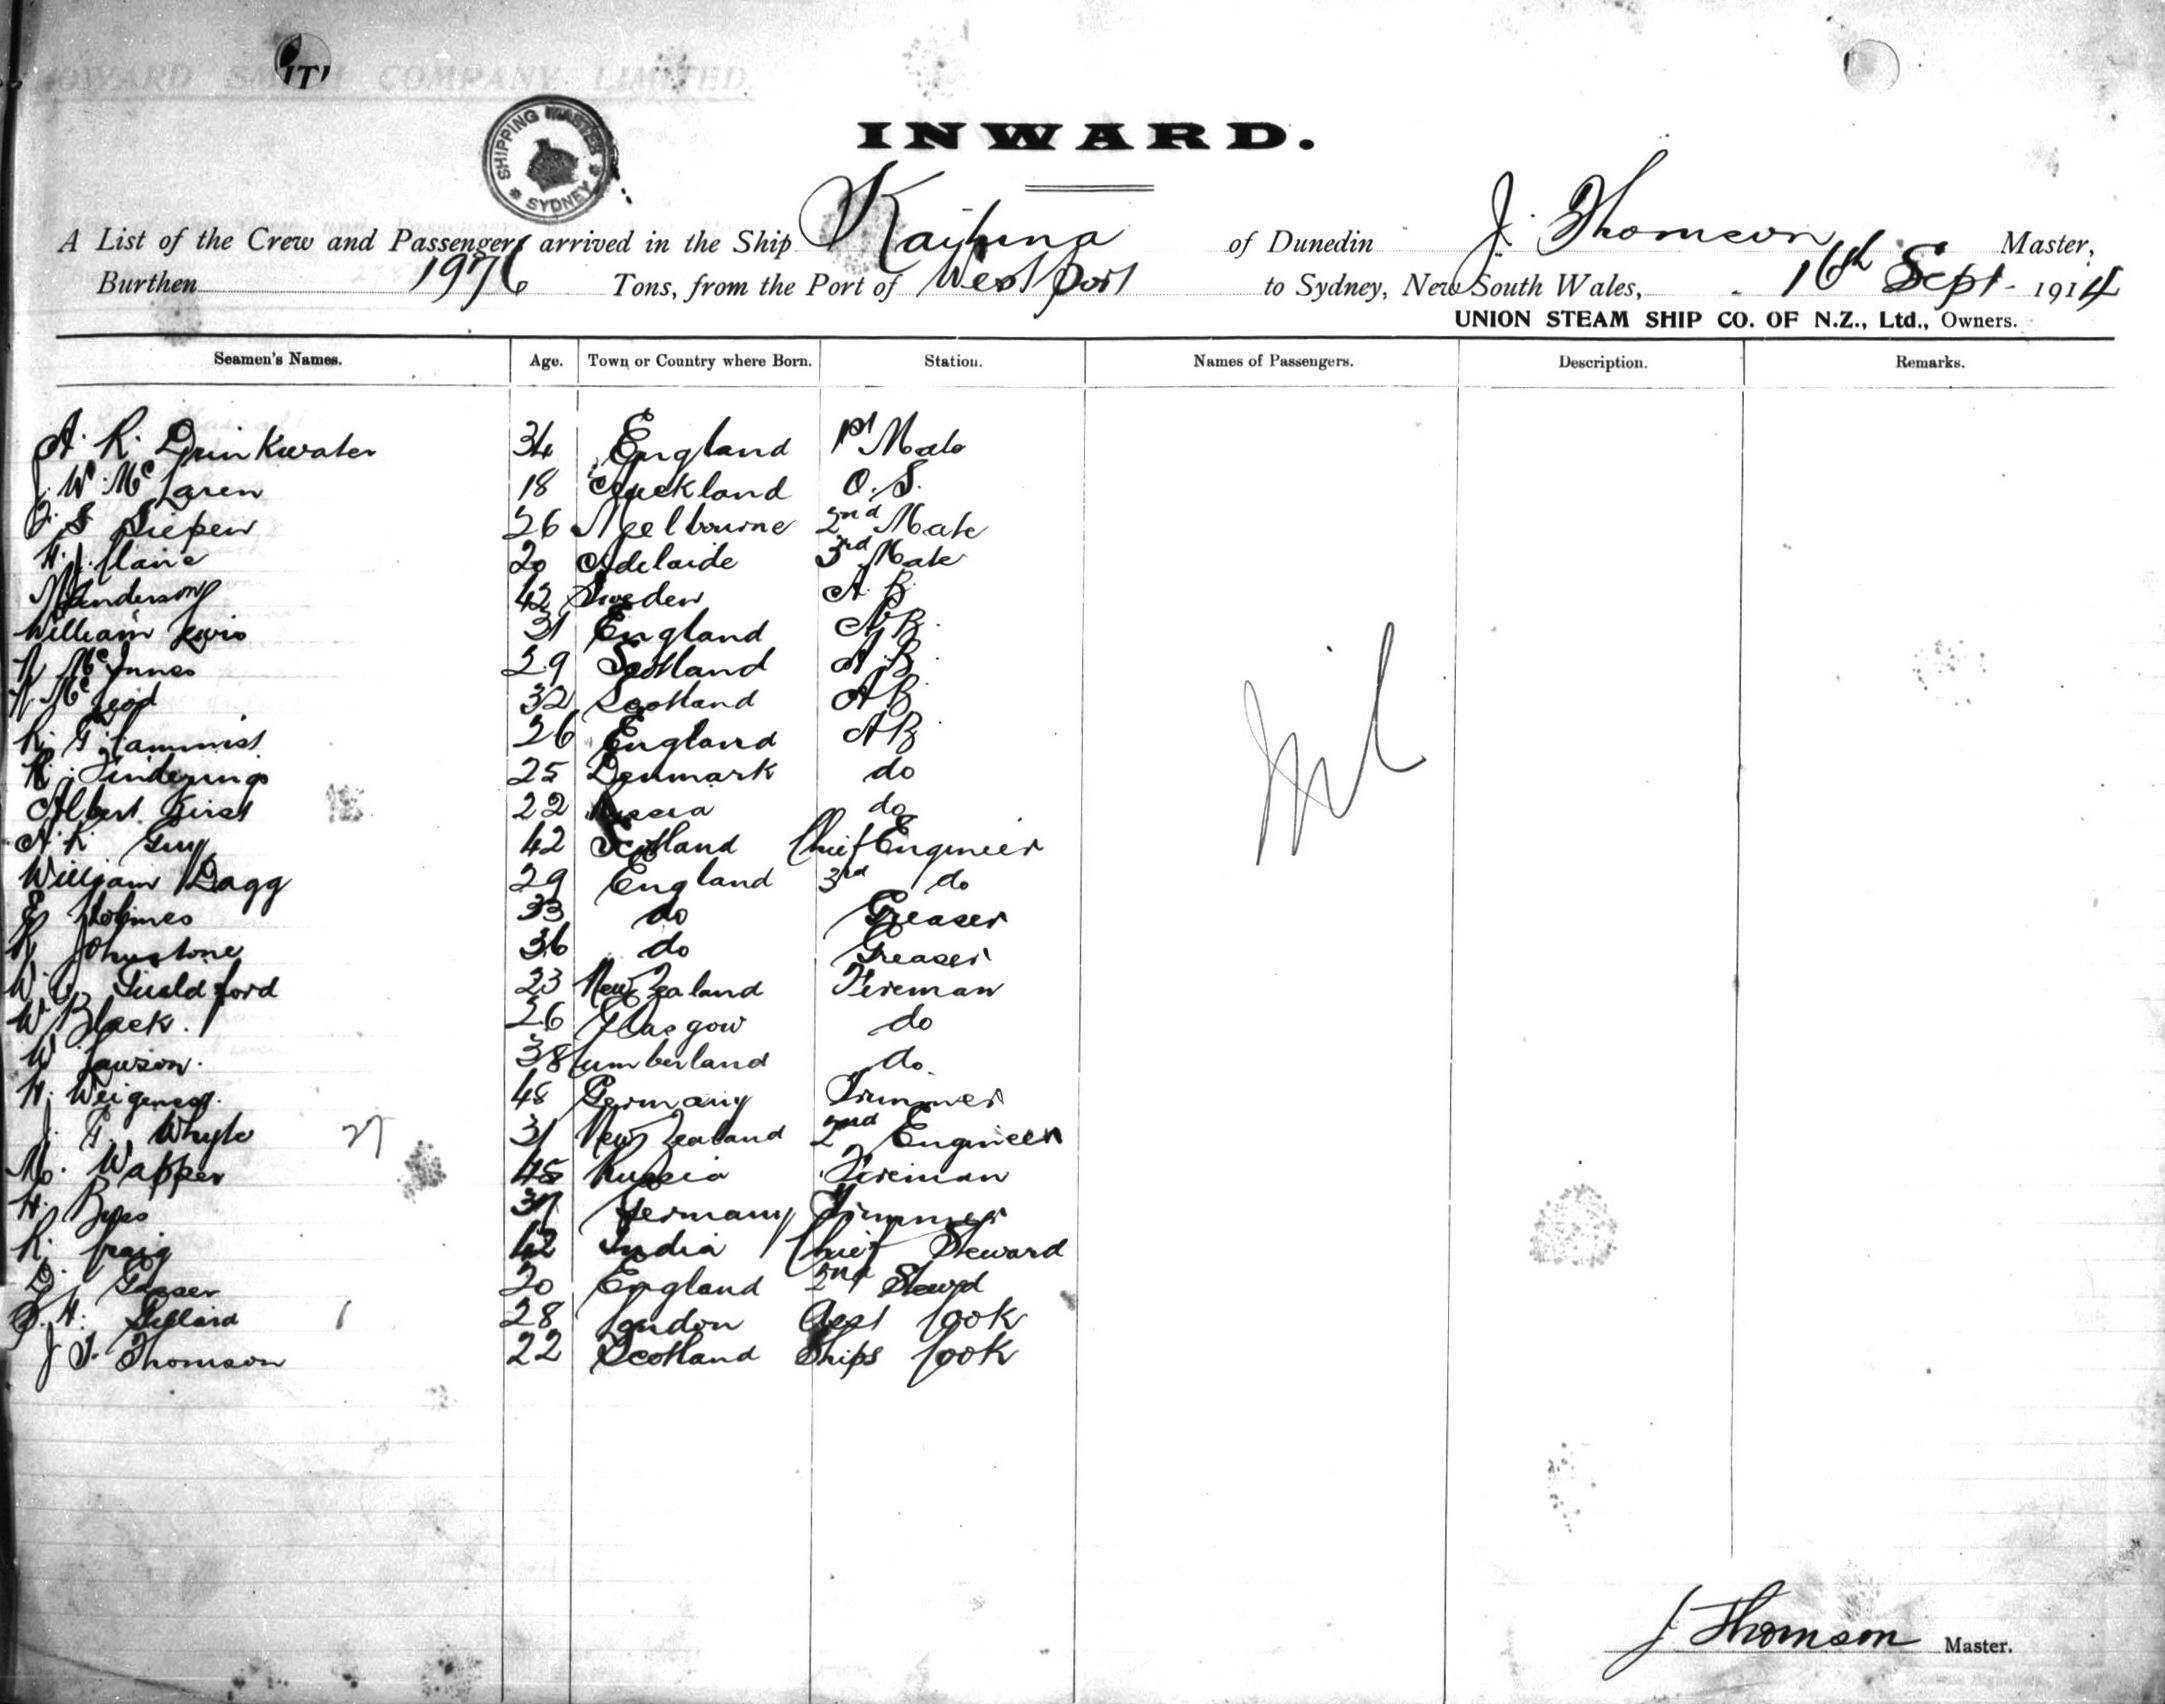 HOWARD SMITH COMPANY LIMITED.
SHIPPING MASTER SYDNEY
INWARD.
A List of the Crew and Passengers arrived in the Ship Kaituna of Dunedin J. Thomson Master,
Burthen 1976 Tons, from the Port of Westport to Sydney, New South Wales, 16th Sept. 1914
UNION STEAM SHIP CO. OF N.Z., Ltd., Owners.
Seamen's Names. Age. Town or Country where Born. Station. Names of Passengers. Description. Remarks.
A. R. Drinkwater 34 England 1st Mate
J. W. McLaren 18 Auckland O.S.
26 Melbourne 2nd Mate
H. J. 20 Adelaide 3rd Mate
Anderson 42 Sweden A.B.
William Lewis 31 England A.B.
McInnes 29 Scotland A.B.
McLeod 32 Scotland A B
R. G. 26 England A B
25 Denmark do
Albert 22 Russia do
A. R. Guy 42 Scotland Chief Engineer
William Dagg 29 England 3rd do
E Holmes 33 do Greaser
Johnstone 36 do Greaser
W. Guildford 23 New Zealand Fireman
W Black. 26 Glasgow do
W Lawson. 38 Cumberland do.
H. 48 Germany Trimmer
J. G. Whyte 27 31 New Zealand 2nd Engineer
M. Wapper 45 Russia Fireman
H. 37 Germany Trimmer
R. Craig 42 India Chief Steward
D. 20 England 2nd Stewd
H. 28 London Asst Cook
J T. Thomson 22 Scotland Ships Cook
Nil
J Thomson Master.